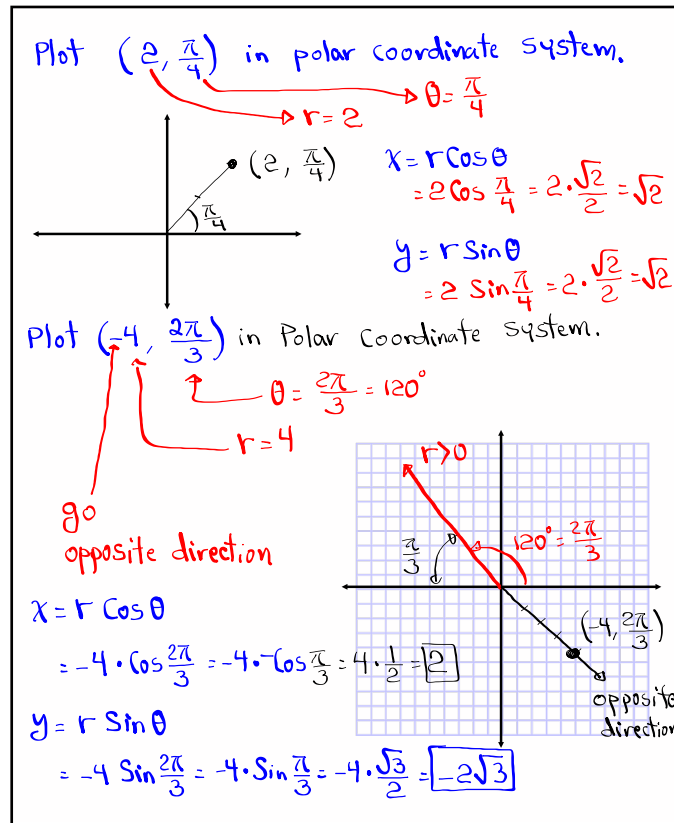 Plot (2, π/4) in polar coordinate system.
θ = π/4
r = 2
(2, π/4)
π/4
x = r Cos θ
= 2 Cos π/4 = 2 · √2/2 = √2
y = r Sin θ
= 2 Sin π/4 = 2 · √2/2 = √2
Plot (-4, 2π/3) in Polar Coordinate System.
θ = 2π/3 = 120°
r = 4
go
opposite direction
r > 0
120° = 2π/3
π/3
θ
(-4, 2π/3)
opposite
direction
x = r Cos θ
= -4 · Cos 2π/3 = -4 · -Cos π/3 = 4 · 1/2 = 2
y = r Sin θ
= -4 Sin 2π/3 = -4 · Sin π/3 = -4 · √3/2 = -2√3